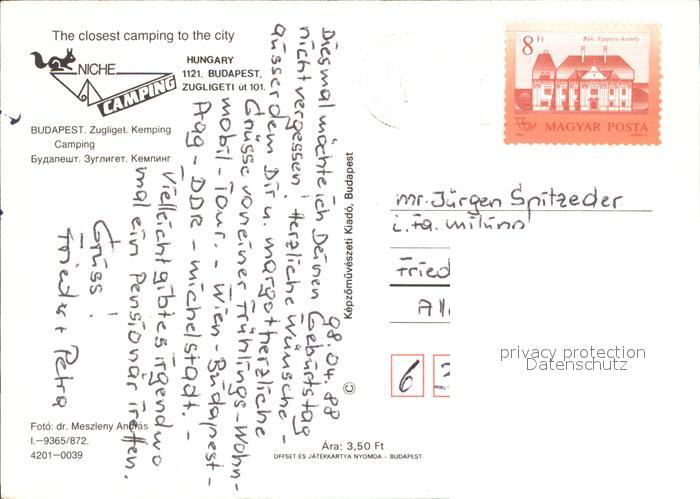 The closest camping to the city
NICHE
CAMPING
HUNGARY
1121. BUDAPEST,
ZUGLIGETI út 101.
BUDAPEST. Zugliget. Kemping
Camping
Будапешт. Зуглигет. Кемпинг
08.04.88
Diesmal möchte ich Deinen Geburtstag
nicht vergessen! Herzliche Wünsche -
ausserdem Dir u. Margot herzliche
Grüsse von einer Frühlings-Wohn-
mobil-Tour. - Wien - Budapest -
Prag - DDR - Michelstadt. -
Vielleicht gibt es irgendwo
mal ein Pensionär Treffen.
Gruss!
Frieder + Petra
Fotó: dr. Meszleny András
I.—9365/872.
4201—0039
Ára: 3,50 Ft
OFFSET ÉS JÁTÉKKÁRTYA NYOMDA – BUDAPEST
© Képzőművészeti Kiadó, Budapest
8 Ft
Bük. Szapáry-kastély
MAGYAR POSTA
Mr. Jürgen Spitzeder
i. Fa. Milunn
Fried
All
6 3
privacy protection
Datenschutz